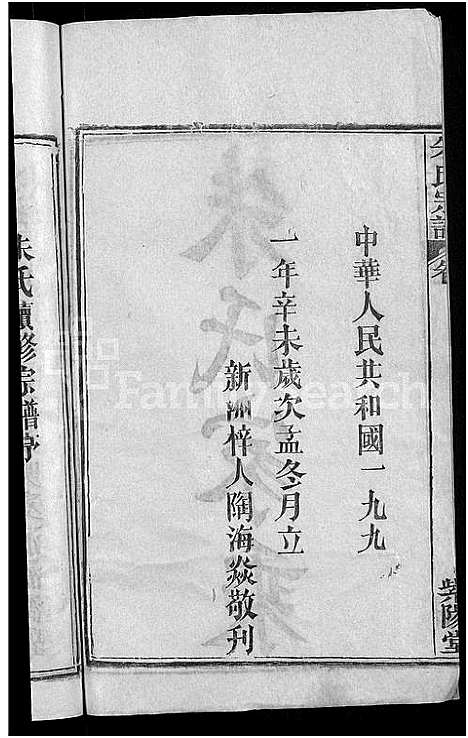 朱氏宗譜
卷
紫陽堂
中華人民共和國一九九
一年辛未歲次孟冬月立
新洲梓人陶海焱敬刊
朱氏續修宗譜序
FamilySearch